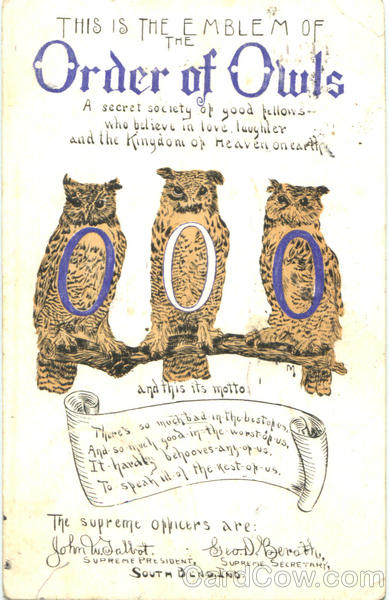 THIS IS THE EMBLEM OF
THE
Order of Owls
A secret society of good fellows—
who believe in love, laughter
and the Kingdom of Heaven on earth
O O O
M
and this its motto
There's so much bad in the best of us,
And so much good in the worst of us,
It hardly behooves any of us,
To speak ill of the Rest of us.
The supreme officers are:
John W. Talbot. Geo. D. Beroth,
SUPREME PRESIDENT, SUPREME SECRETARY,
SOUTH BEND, IND
CardCow.com